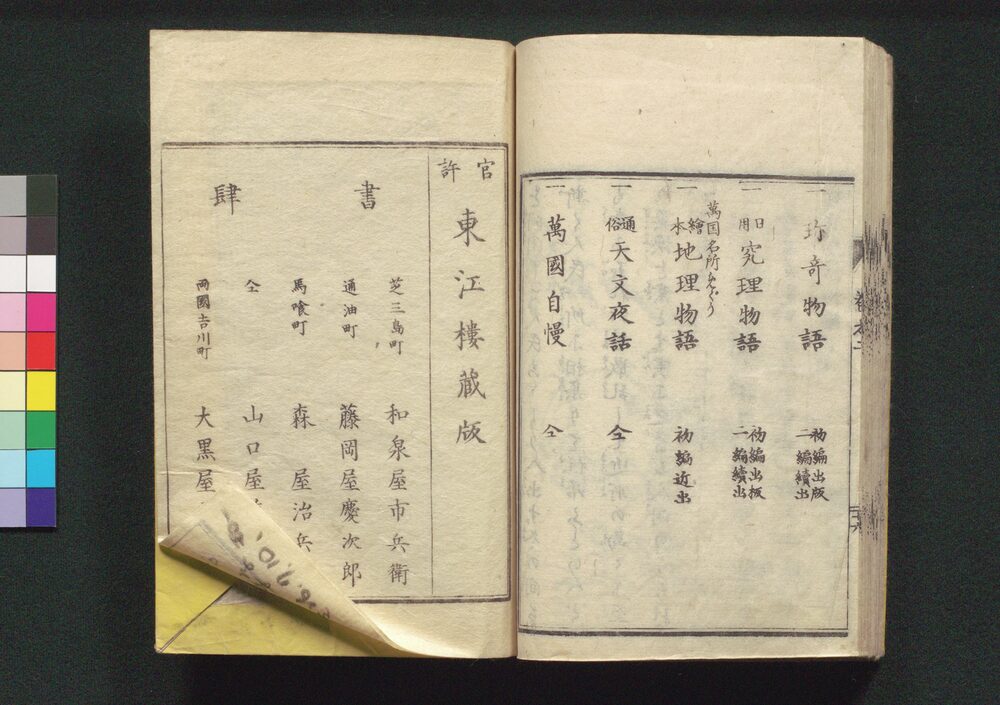 一 珎奇物語 初編出版 二編續出
一 日用 究理物語 初編出板 二編續出
萬国名所
一 繪本 地理物語 初編近出
一 通俗 天文夜話 仝
一 萬國自慢 仝
官許 東江樓蔵版
書肆
芝三島町 和泉屋市兵衛
通油町 藤岡屋慶次郎
馬喰町 森屋治兵
仝 山口屋
両國吉川町 大黒屋